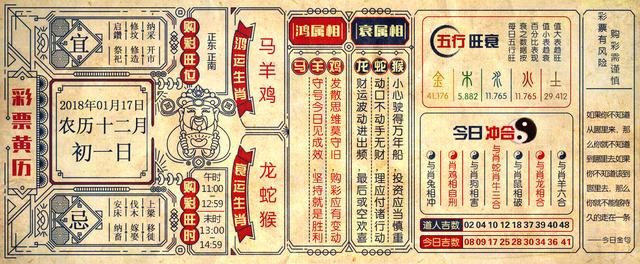 彩票黄历
宜
纳采 开市
修坟 修造
启鑽 祭祀
2018年01月17日
农历十二月
初一日
忌
上梁 移徙
伐木 嫁娶
安床 纳畜
购彩旺位
正东 正南
购彩旺时
午时
11:00
12:59
未时
13:00
14:59
鸿运生肖
马羊鸡
衰运生肖
龙蛇猴
鸿属相
马羊鸡
发散思维莫守旧 购彩应有变动
守号今日见成效 坚持就是胜利
衰属相
龙蛇猴
小心驶得万年船 投资应当慎重
动口不动手无财 理应付诸行动
财运波动进出频 最后或空欢喜
五行旺衰
每日五行旺
衰之数据按
百分比表现
值小表趋衰
值大表趋旺
金 木 水 火 土
41.176 5.882 11.765 11.765 29.412
今日冲合
与肖兔相冲
肖鸡相自刑
与肖狗相害
与肖蛇肖牛三合
与肖鼠相破
与肖龙相合
与肖羊六合
道人吉数 02 04 10 12 18 37 39 40 48
今日吉数 08 09 17 25 28 30 34 36 41
购彩需谨慎
彩票有风险
如果你不知道
从哪里来，那
么你就不知道
到哪里去如果
你不知道该到
哪里去，那么
你就不能够持
久的走在一条
——今日金句